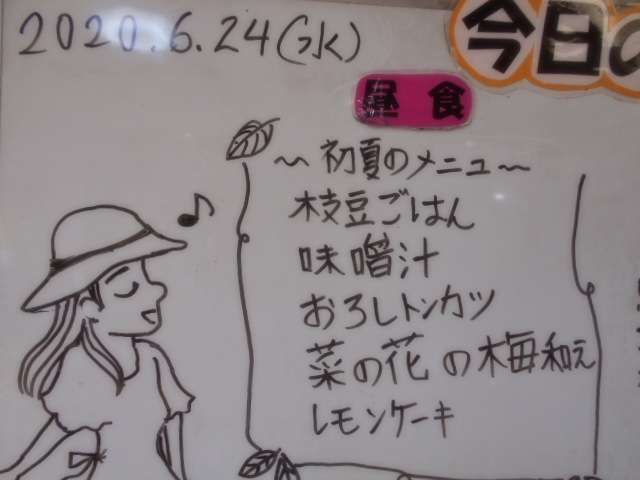 2020.6.24(水)
今日の
昼食
～初夏のメニュー～
枝豆ごはん
味噌汁
おろしトンカツ
菜の花の梅和え
レモンケーキ